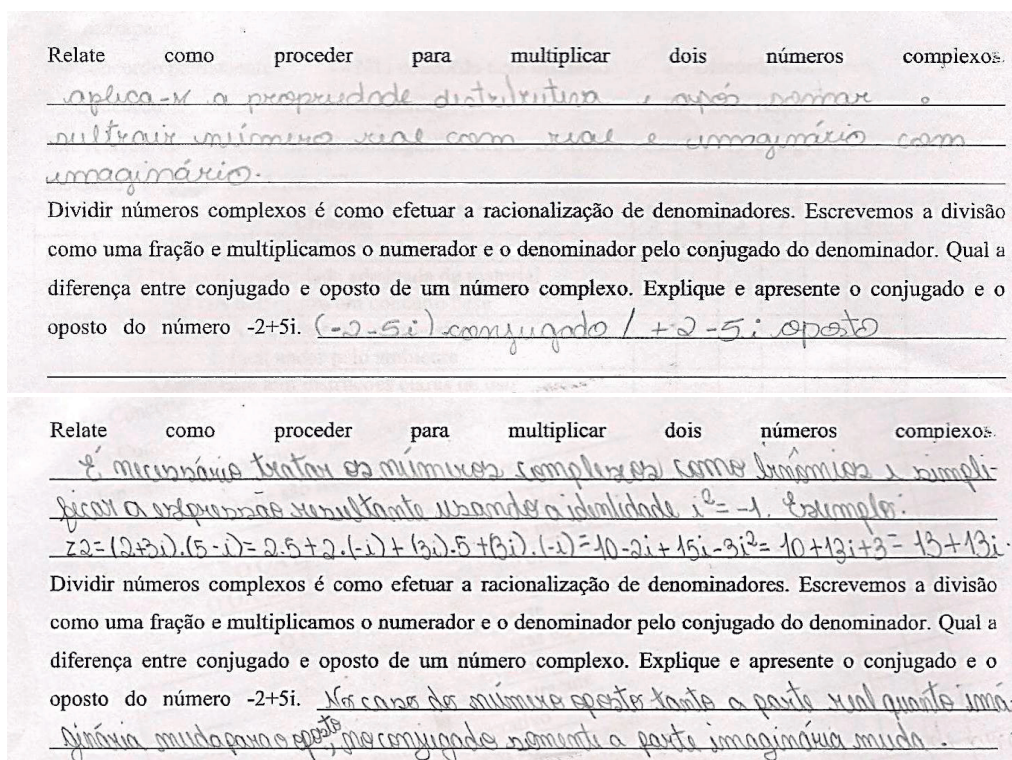 Relate como proceder para multiplicar dois números complexos.
aplica-se a propriedade distributiva e após somar e
subtrair número real com real e imaginário com
imaginário.
Dividir números complexos é como efetuar a racionalização de denominadores. Escrevemos a divisão
como uma fração e multiplicamos o numerador e o denominador pelo conjugado do denominador. Qual a
diferença entre conjugado e oposto de um número complexo. Explique e apresente o conjugado e o
oposto do número -2+5i. (-2-5i) conjugado / +2-5i oposto
Relate como proceder para multiplicar dois números complexos.
É necessário tratar os números complexos como binômios e simpli-
ficar a expressão resultante usando a identidade i²= -1. Exemplo:
z2=(2+3i).(5-i)=2.5+2.(-i)+(3i).5+(3i).(-i)=10-2i+15i-3i²=10+13i+3=13+13i.
Dividir números complexos é como efetuar a racionalização de denominadores. Escrevemos a divisão
como uma fração e multiplicamos o numerador e o denominador pelo conjugado do denominador. Qual a
diferença entre conjugado e oposto de um número complexo. Explique e apresente o conjugado e o
oposto do número -2+5i. No caso do número oposto tanto a parte real quanto ima-
ginária muda para o oposto, no conjugado somente a parte imaginária muda.